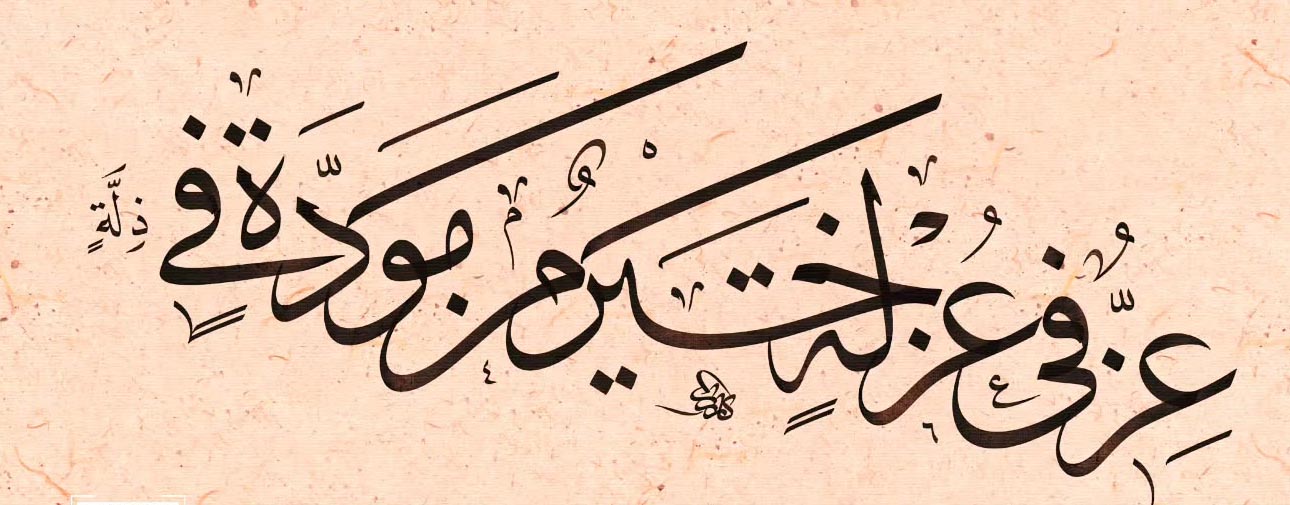 عِزٌّ فِي عُزْلَةٍ خَيْرٌ مِنْ مَوَدَّةٍ فِي ذِلَّةٍ